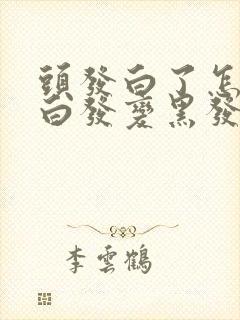 頭發白了怎
白發變黑發
李雲鶴